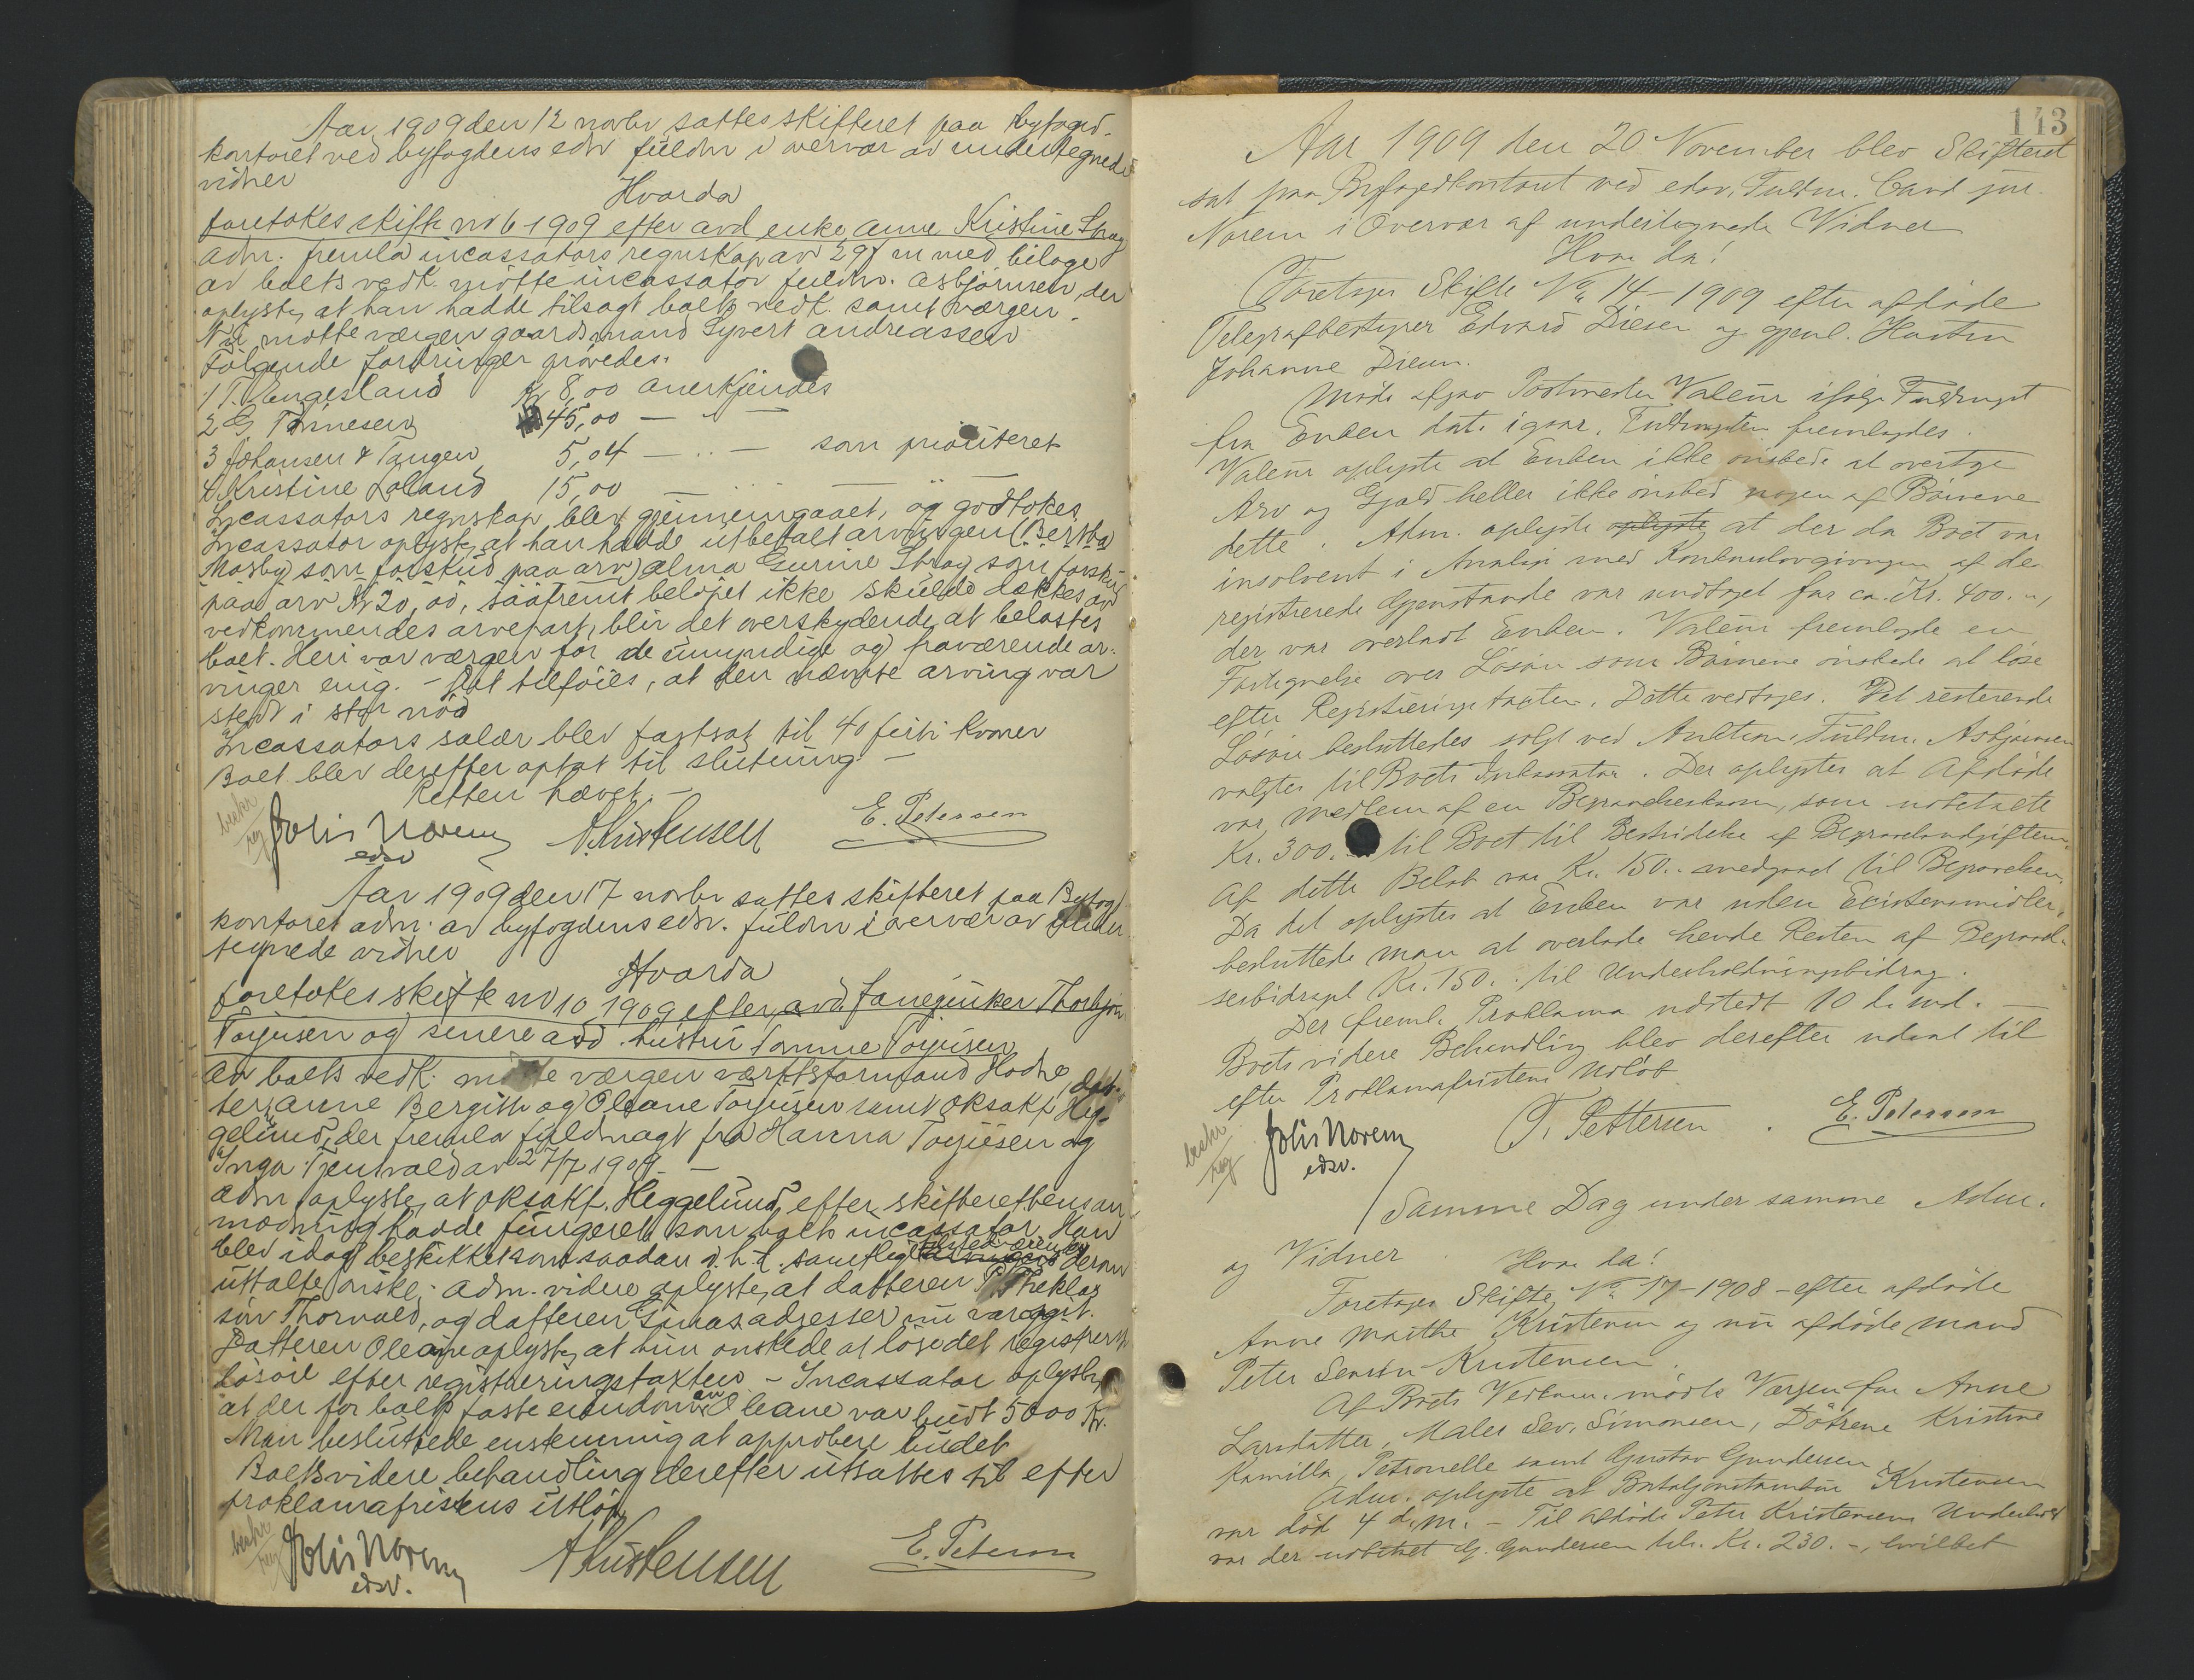 Aar 1909 den 12 novbr sattes skifteret paa byfogd-
kontoret ved byfogdens edsv fuldm i overvær av undertegnede
vidner
Hvorda
foretokes skifte no 6 1909 efter avd enke Anne Kristine Stray
Adm. fremla incassators regnskap av 29/ m med bilage
av boets vedk. mötte incassator fuldm. Asbjörnsen, der
oplyste, at han hadde tilsagt boets vedk. samt værgen.
mötte værgen gaardsmand Syvert Andreassen
Følgende fordringer prövedes.
1 T. Engesland Kr 8,00 anerkjendes
2 G Tönnesen 45,00 — " —
3 Johansen & Tangen 5,04 — " — som prioriteret
4 Kristine Loland 15,00 — " —
Incassators regnskap blev gjennemgaaet, og godtokes
Incassator oplyste, at han hadde utbetalt arvingen (Bertha
Mosby som forskud paa arv) Alma Gurine Stray som forskud
paa arv Kr 20,00, saafremt belöpet ikke skulde dækkes av
vedkommendes arvepart, blir det overskydende at belastes
boet. Heri var værgen for de umyndige og fraværende ar-
vinger enig. - Det tilföies, at den nævnte arving var
stedt i stor nöd
Incassators salær blev fastsat til 40 firti kroner
Boet blev derefter optat til slutning -
Retten hævet. -
bekr
reg
Johs Norem
edsv
A Kristensen
E. Petersen
Aar 1909 den 17 novbr sattes skifteret paa Byfogd
kontoret adm. av byfogdens edsv. fuldm i overvær av under
tegnede vidner
Hvorda
foretokes skifte no 10 1909 efter avd. Thorbjörn
Torjusen og senere avd. hustru Tomine Torjusen
Av boets vedk. mötte værgen værftsformand Hodne döt-
terene Anne Bergitte og Oleane Torjusen samt oksakf. Heg-
gelund, der fremla fuldmagt fra Hanna Torjusen og
Inga av 27/7 1909. —
Adm oplyste, at oksakf. Heggelund efter skifterettens an
modning hadde fungeret som boets incassator. Han
blev idag beskikket som saadan i h. t. samtlige tilstedeværendes derom
uttalte önske. Adm. videre oplyste, at datteren Theklas
sön Thorvald, og datteren Ginas adresser nu var opgit.
Datteren Oleane oplyste, at hun önskede at löse det registrerte
lösöre efter registreringstaxten. - Incassator oplyste
at der for boets faste eiendom av Oleane var budt 5000 Kr.
Man besluttede enstemmig at approbere budet
Boets videre behandling derefter utsattes til efter
proklamafristens utlöp
bekr
reg
Johs Norem
edsv.
A Kristensen
E. Petersen
143
Aar 1909 den 20 November blev Skifteret
sat paa Byfogedkontoret ved edsv. Fuldm. Cand jur.
Norem i Overvær af undertegnede Vidner
Hvor da!
Foretages Skifte No 14 - 1909 efter afdöde
Telegrafbestyrer Edvard Diesen og gjenl. Hustru
Johanne Diesen.
Möde afgav Postmester Valeur ifölge Fuldmagt
fra Enken dat. igaar. Fuldmagten fremlagdes.
Valeur oplyste at Enken ikke önskede at overtage
Arv og Gjæld heller ikke önsked nogen af Börnene
dette. Adm. oplyste oplyste at der da Boet var
insolvent i Analogi med Konkurslovgivningen af de
registrerede Gjenstande var undtaget for ca. Kr. 400.-,
der var overladt Enken. Valeur fremlagde en
Fortegnelse over Lösöre som Börnene önskede at löse
efter Registreringstaxten. Dette vedtoges. Det resterende
Lösöre besluttedes solgt ved Auktion. Fuldm. Asbjörnsen
valgtes til Boets Inkassator. Der oplystes at Afdöde
var medlem af en Begravelseskasse, som udbetalte
Kr. 300.- til Boet til Bestridelse af Begravelsesudgiften.
Af dette Belöb var Kr. 150.- medgaaet til Begravelsen.
Da det oplystes at Enken var uden Existensmidler,
besluttede man at overlade hende Resten af Begravel-
sesbidraget Kr. 150.- til Underholdningsbidrag.
Der freml. Proklama udstedt 10 ds md. —
Boets videre Behandling blev derefter udsat til
efter Proklamafristens Udlöb
bekr
reg
Johs Norem
edsv.
T. Pettersen
E. Petersen
Samme Dag under samme Adm.
og Vidner
Hvor da!
Foretages Skifte No 17 - 1908 - efter afdöde
Anne Marthe Kristensen og nu afdöde mand
Peter Kristensen.
Af Boets Vedkom. mödte Værgen for Anne
Larsdatter, Maler Sev. Simonsen, Dötrene Kristine
Kamilla, Petronelle samt Gustav Gundersen
Adm. oplyste at Kristensen
var död 4 d.M. - Til afdöde Peter Kristensens Underhold
var der udbetalt G. Gundersen Kr. 230.-, hvilket